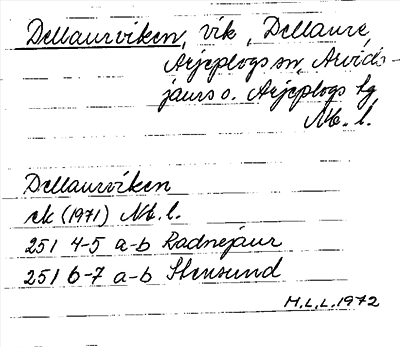 Dellaurviken, vik, Dellaure,
Arjeplogs sn, Arvids-
jaurs o. Arjeplogs tg
Nb. l.
Dellaurviken
ek (1971) Nb. l.
25I 4-5 a-b Radnejaur
25I 6-7 a-b Stensund
M.L.L. 1972